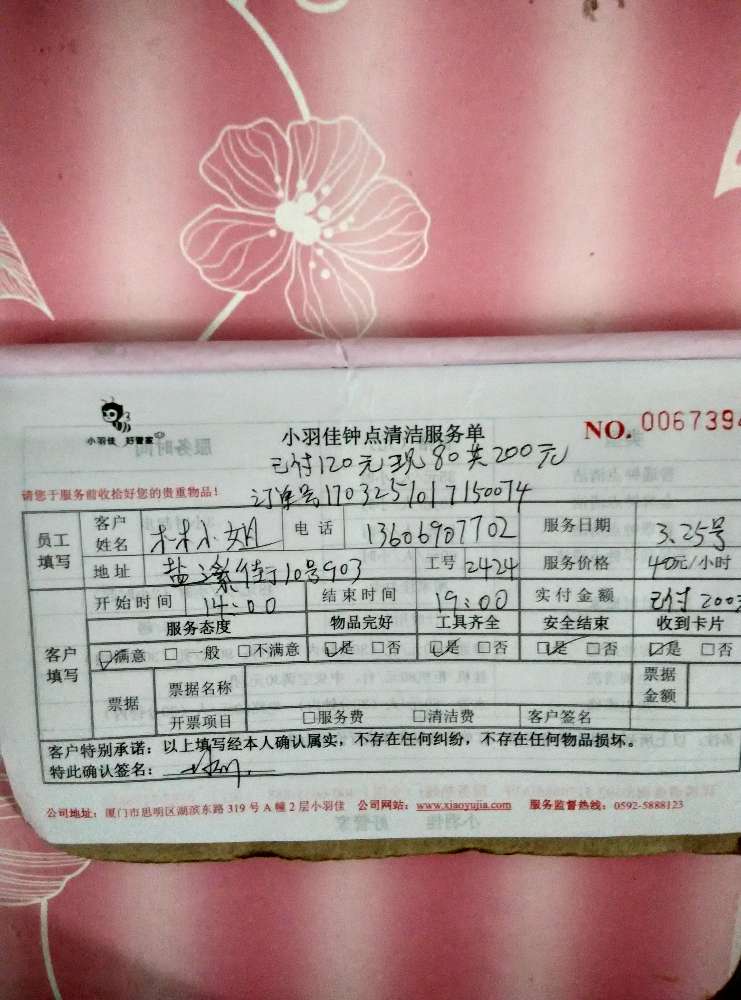 小羽佳 好管家
小羽佳钟点清洁服务单
NO. 0067394
已付120元现80共200元
请您于服务前收拾好您的贵重物品!
订单号17032510171150074
员工填写 客户姓名 林小姐 电话 13606907702 服务日期 3.25号
地址 街10号903 工号 2424 服务价格 40元/小时
客户填写 开始时间 14:00 结束时间 19:00 实付金额 已付200
服务态度 物品完好 工具齐全 安全结束 收到卡片
☑满意 □一般 □不满意 ☑是 □否 ☑是 □否 ☑是 □否 ☑是 □否
票据 票据名称 票据金额
开票项目 □服务费 □清洁费 客户签名
客户特别承诺:以上填写经本人确认属实,不存在任何纠纷,不存在任何物品损坏。
特此确认签名:
公司地址:厦门市思明区湖滨东路 319 号 A 幢 2 层小羽佳 公司网站:www.xiaoyujia.com 服务监督热线:0592-5888123